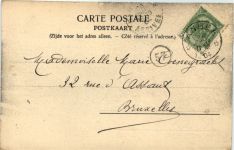 CARTE POSTALE
POSTKAART
(Zijde voor het adres alleen. — Côté réservé à l'adresse.)
Mademoiselle Marie
32 rue d'Assaut
Bruxelles